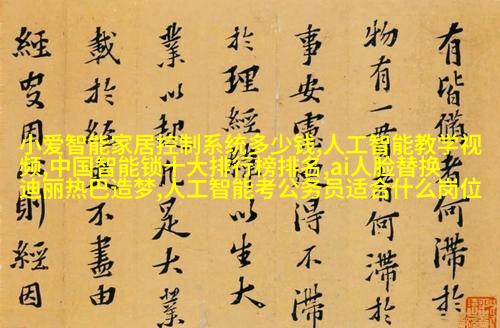 小爱智能家居控制系统多少钱,人工智能教学视
频,中国智能锁十大排行榜排名,ai人脸替换
迪丽热巴造梦,人工智能考公务员适合什么岗位
有皆備者何滯於
物有一何滯於
事安得不滯
於理經以生大
業以足大業
載於經不盡由
經因則經因